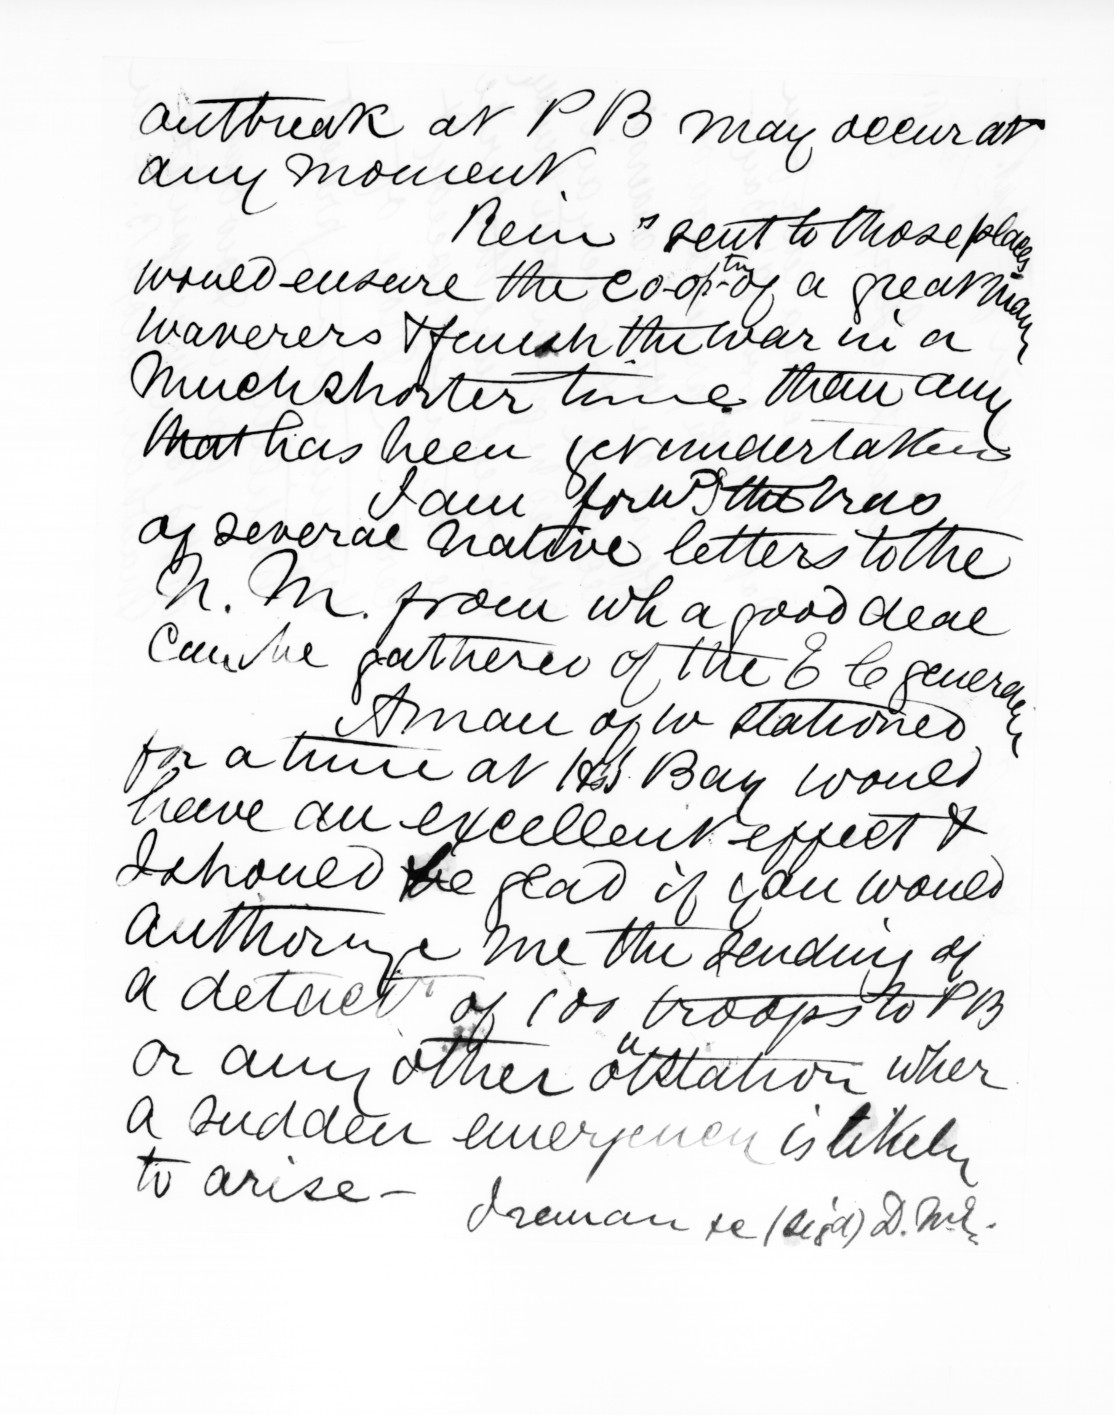 outbreak at P B may occur at
any moment.
Rein s sent to those places
would ensure the co-op tn of a great many
waverers & finish the war in a
much shorter time than any
that has been yet undertaken
I am forwg the trns
of several native letters to the
N. M. from wh a good deal
can be gathered of the E C generally
A man of w stationed
for a time at Hs Bay would
have an excellent effect &
I should be glad if you would
authorize me the sending of
a detact of 100 troops to P B
or any other outstation wher
a sudden emergency is likely
to arise -
I reman &c (sigd) D. McL.